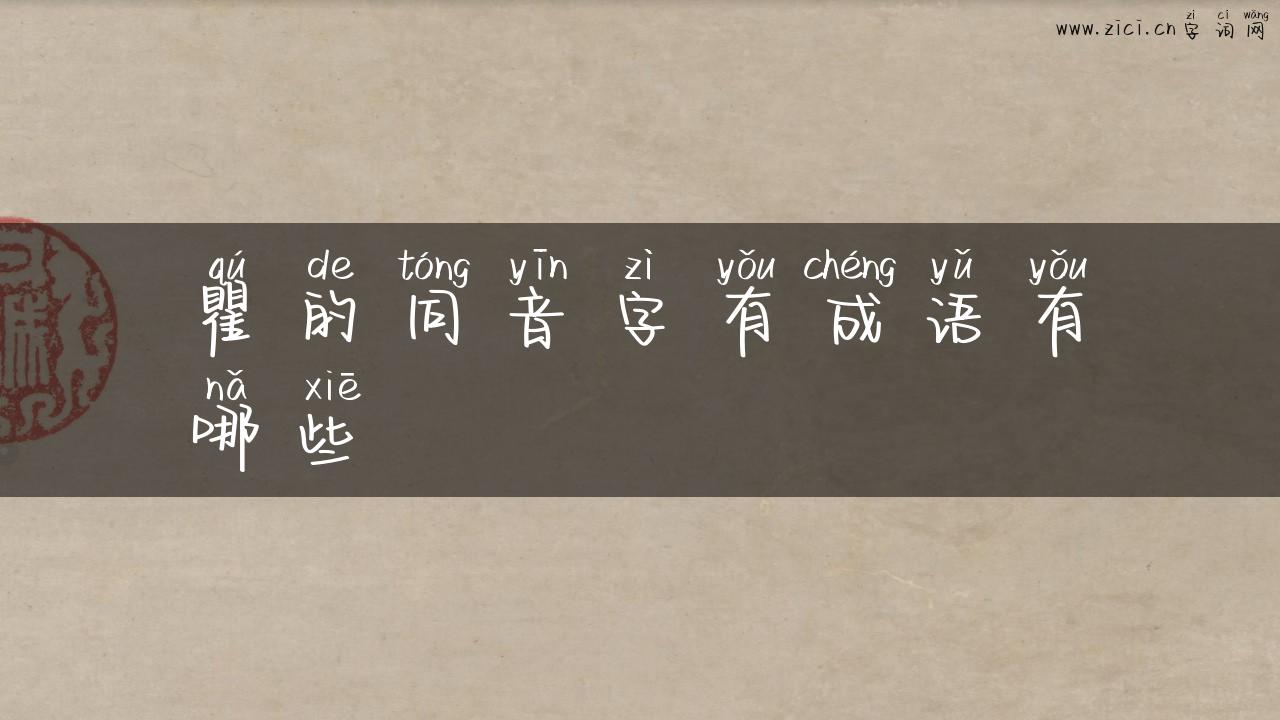 zì cí wǎng
www.zici.cn 字词网
qú de tóng yīn zì yǒu chéng yǔ yǒu
瞿的同音字有成语有
nǎ xiē
哪些